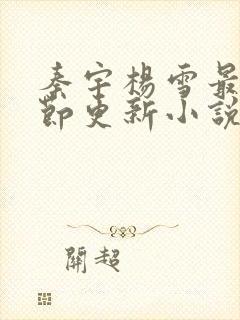 秦宇楊雪最
節更新小說
開超